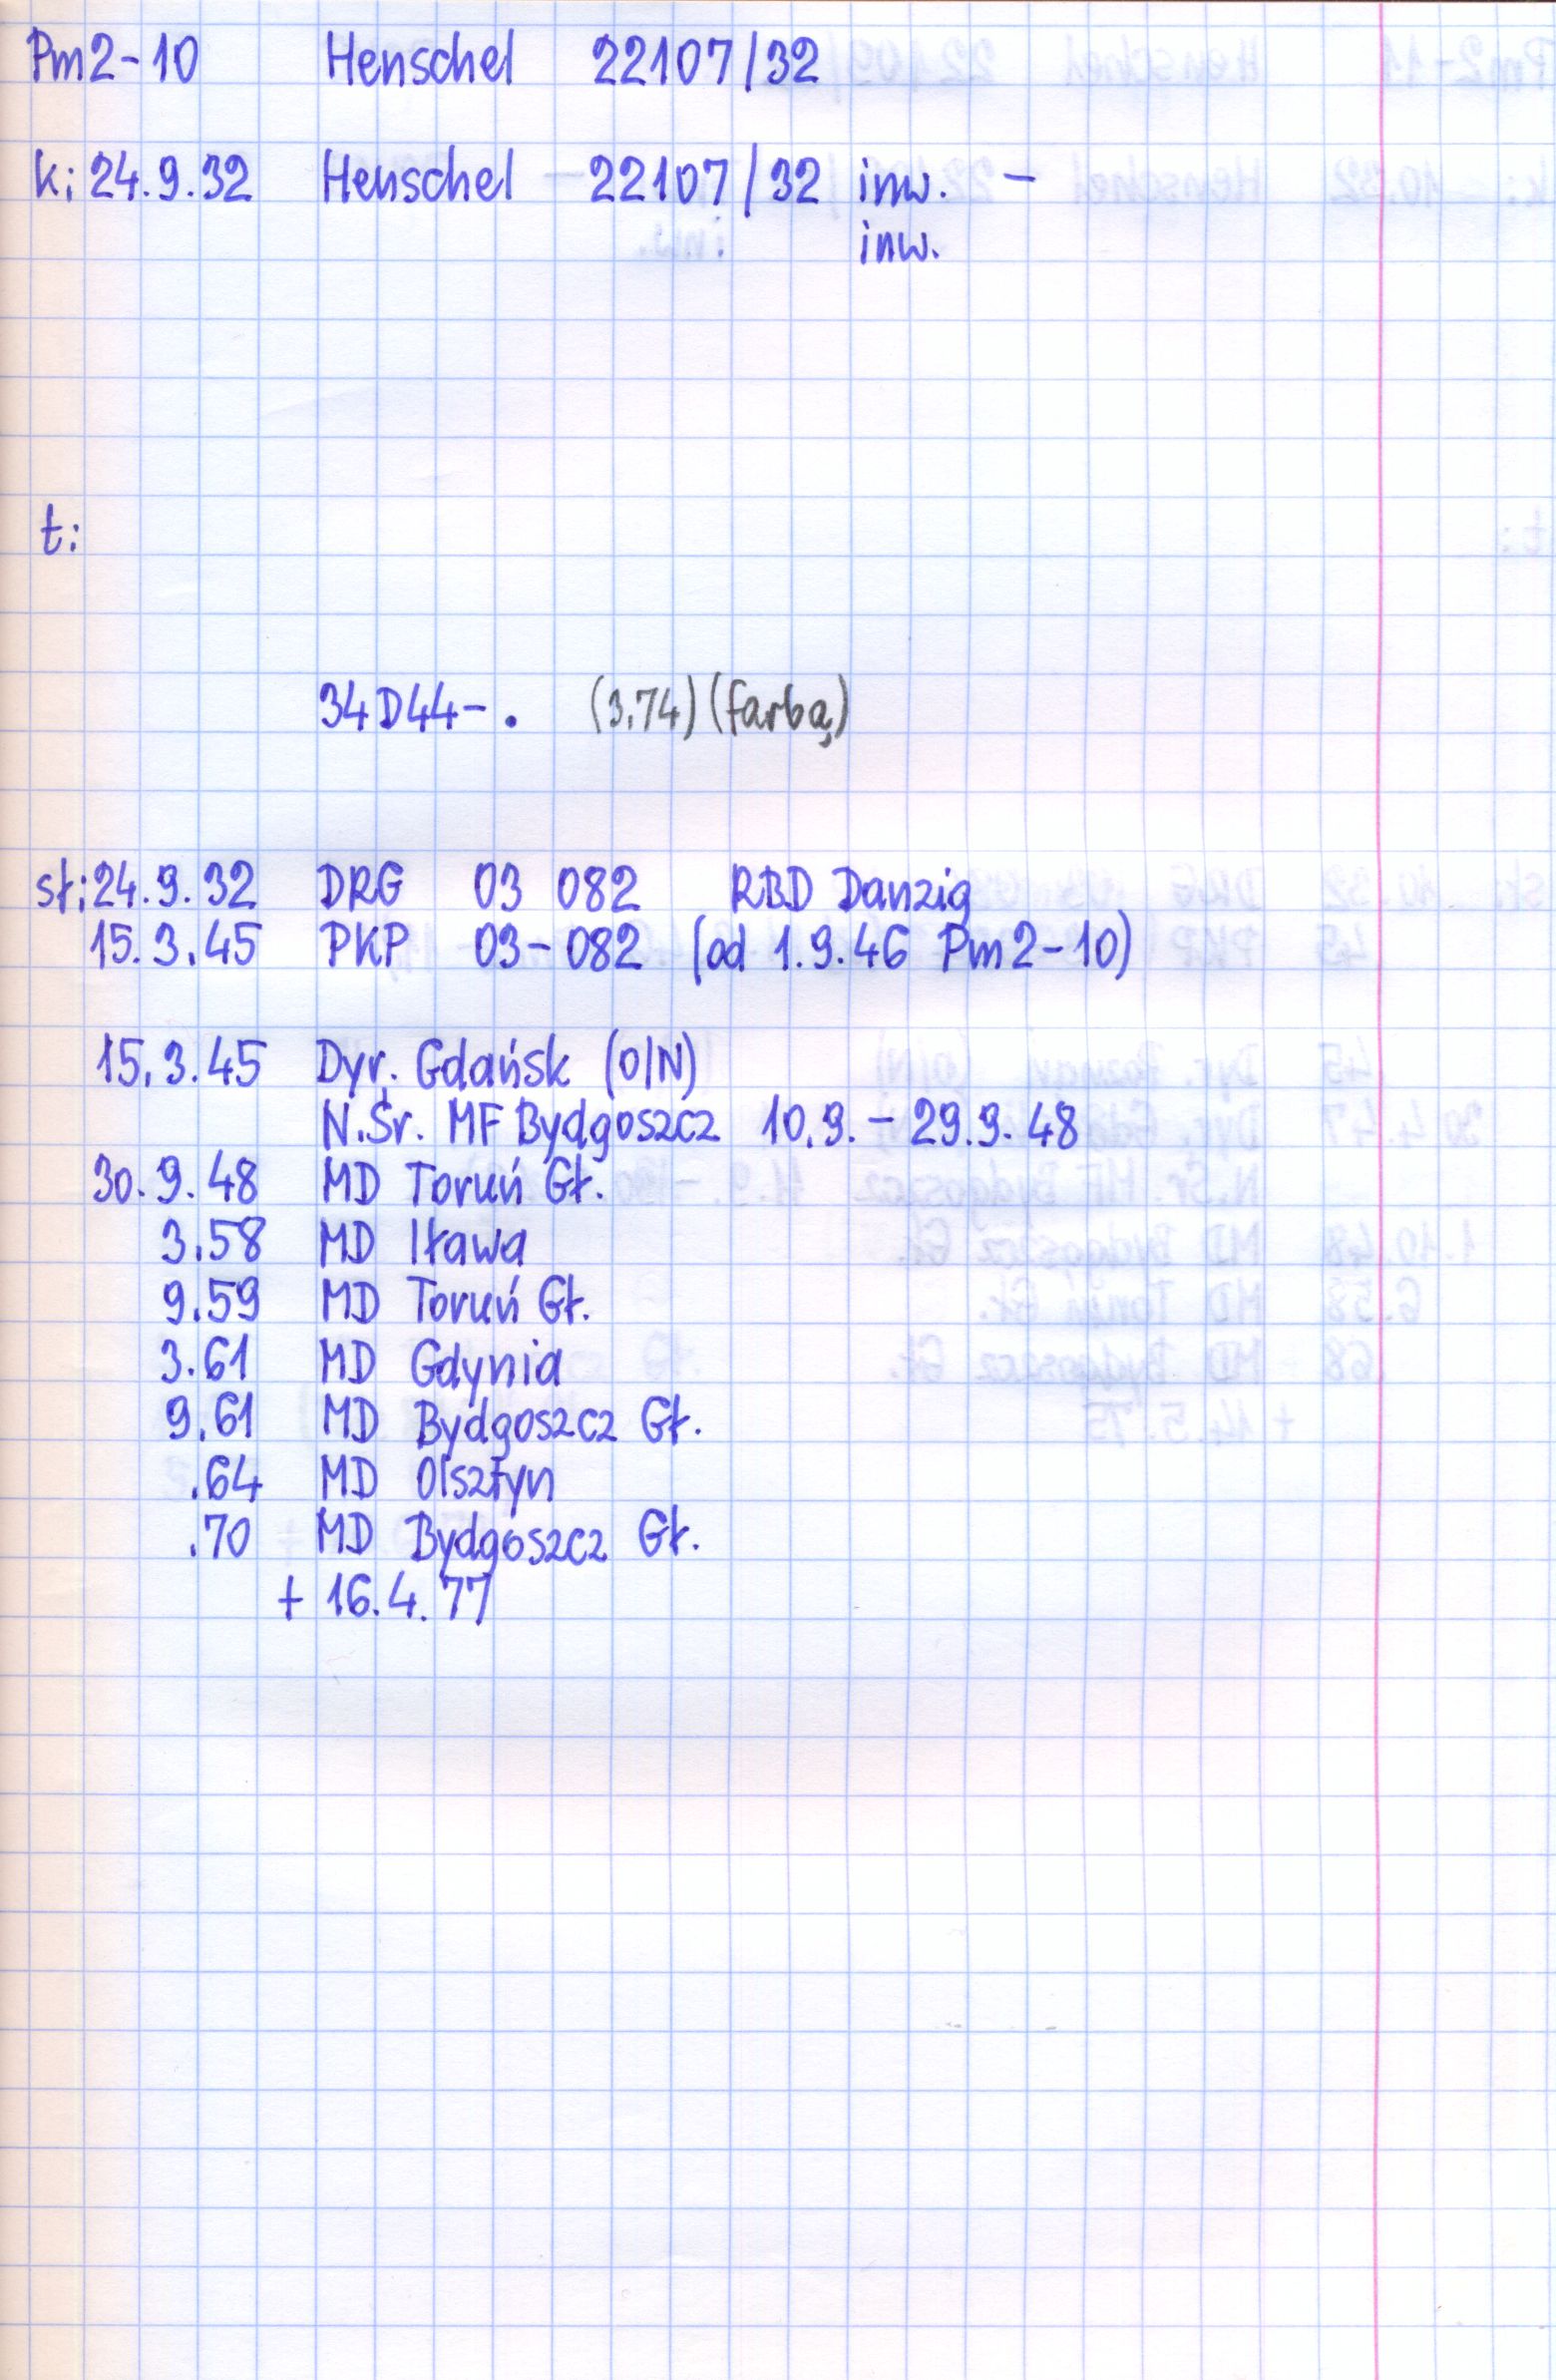 Pm2-10 Henschel 22107/32
k: 24.9.32 Henschel 22107/32 inw. -
inw.
t:
34D44-. (3.74) (farbą)
st: 24.9.32 DRG 03 082 RBD Danzig
15.3.45 PKP 03-082 (od 1.9.46 Pm2-10)
15.3.45 Dyr. Gdańsk (O/N)
N.Śr. MF Bydgoszcz 10.9.-29.9.48
30.9.48 MD Toruń Gł.
3.58 MD Iława
9.59 MD Toruń Gł.
3.61 MD Gdynia
9.61 MD Bydgoszcz Gł.
.64 MD Olsztyn
.70 MD Bydgoszcz Gł.
+ 16.4.77